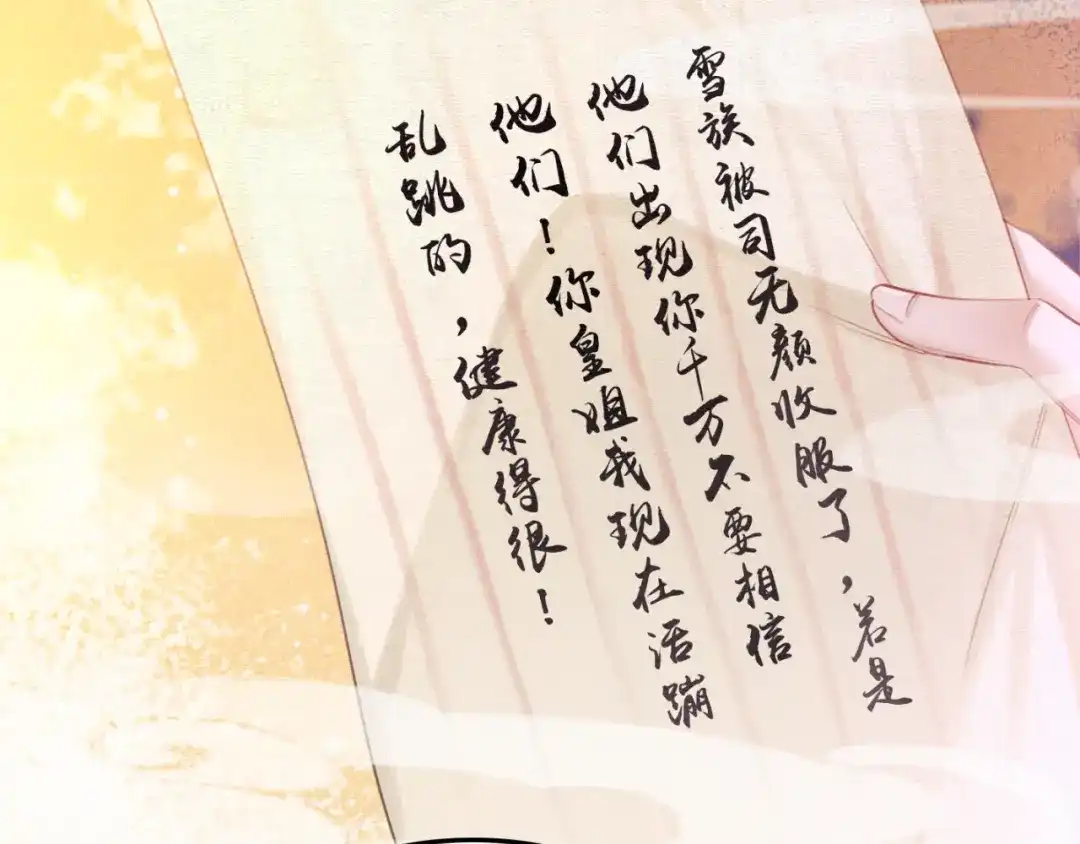 雪族被司无颜收服了，若是
他们出现你千万不要相信
他们！你皇姐我现在活蹦
乱跳的，健康得很！